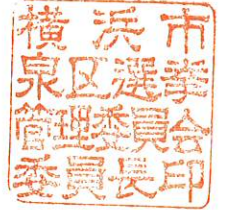 横浜市
泉区選挙
管理委員会
委員長印